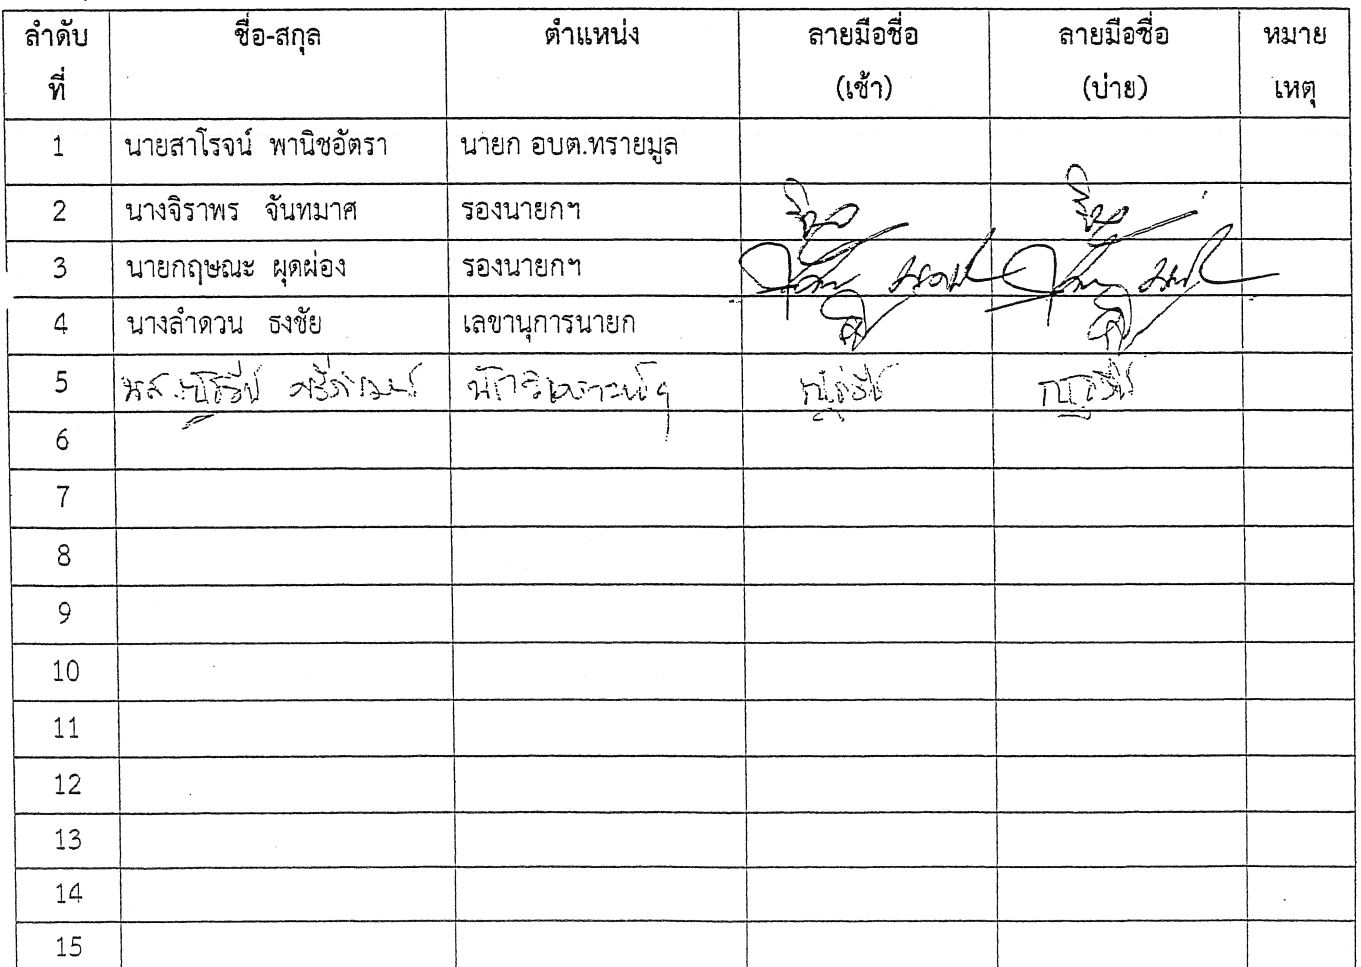 ลำดับที่ ชื่อ-สกุล ตำแหน่ง ลายมือชื่อ (เช้า) ลายมือชื่อ (บ่าย) หมายเหตุ
1 นายสาโรจน์ พานิชอัตรา นายก อบต.ทรายมูล
2 นางจิราพร จันทมาศ รองนายกฯ
3 นายกฤษณะ ผุดผ่อง รองนายกฯ
4 นางลำดวน ธงชัย เลขานุการนายก
5 นักวิเคราะห์ฯ
6
7
8
9
10
11
12
13
14
15